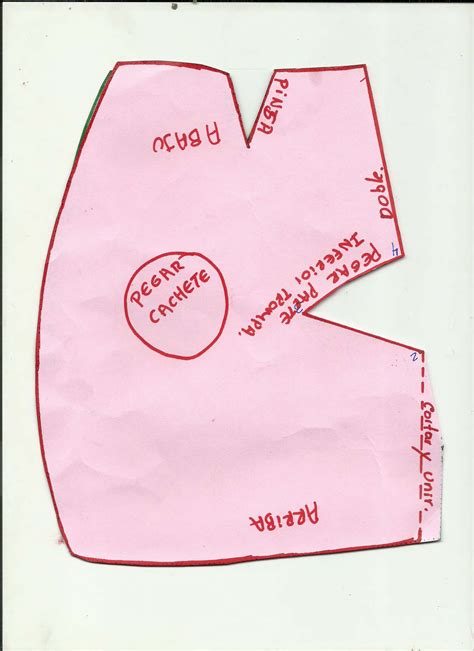 ABAJO
PiNZA
Doble.
4
PEGAR PARTE
INFERIOR
TROMPA.
2
PEGAR
CACHETE
2
Cortar y Unir.
ARRiBA